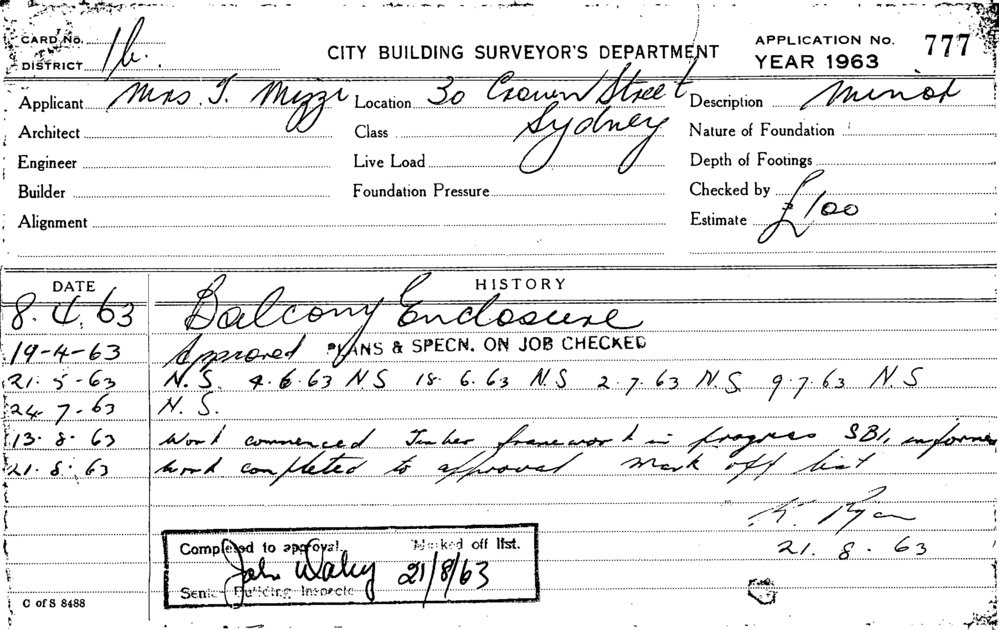 CARD No.
DISTRICT 16.
CITY BUILDING SURVEYOR'S DEPARTMENT
APPLICATION No. 777
YEAR 1963
Applicant Mrs. J. Mizzi Location 30 Crown Street Sydney Description Minor
Architect Class Nature of Foundation
Engineer Live Load Depth of Footings
Builder Foundation Pressure Checked by
Alignment Estimate £100
DATE HISTORY
8.4.63 Balcony Enclosure
19-4-63 Approved PLANS & SPECN. ON JOB CHECKED
21.5.63 N.S. 4.6.63 N.S 18.6.63 N.S 2.7.63 N.S. 9.7.63 N.S
24.7.63 N.S.
13.8.63 Work commenced Timber framework in progress SBI, informed
21.8.63 Work completed to approval mark off list
K. Ryan
21.8.63
Completed to approval. Marked off list.
John Daley 21/8/63
Senior Building Inspector
C of S 8488